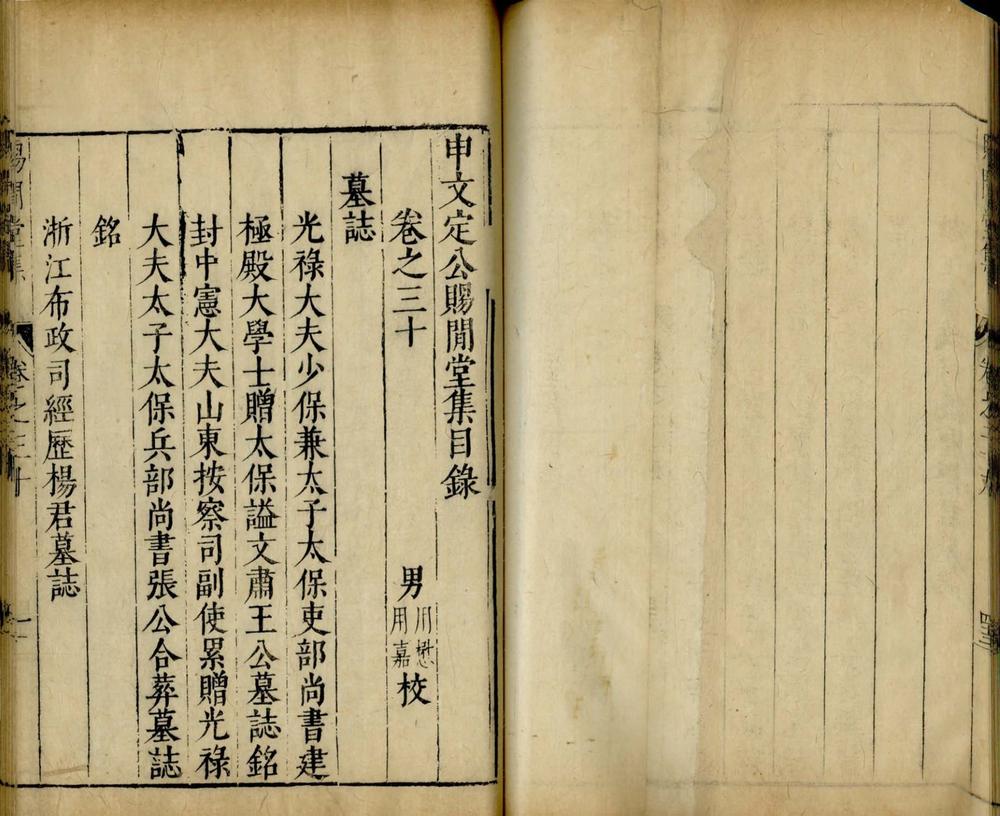 申文定公賜閒堂集目錄
卷之三十
男
用懋
用嘉
校
墓誌
光祿大夫少保兼太子太保吏部尚書建
極殿大學士贈太保謚文肅王公墓誌銘
封中憲大夫山東按察司副使累贈光祿
大夫太子太保兵部尚書張公合葬墓誌
銘
浙江布政司經歷楊君墓誌
賜閒堂集
卷之三十
一